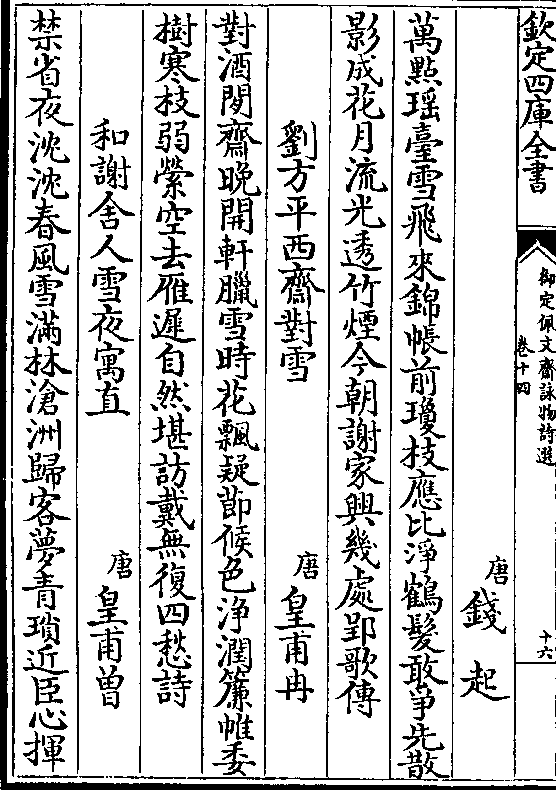 欽定四庫全書
御定佩文齋詠物詩選
卷十四
十六
唐 錢起
萬點瑶臺雪飛來錦帳前瓊枝應比淨鶴髮敢爭先散
影成花月流光透竹煙今朝謝家興幾處郢歌傳
劉方平西齋對雪 唐 皇甫冉
對酒閒齋晚開軒臘雪時花飄疑節候色淨潤簾帷委
樹寒枝弱縈空去雁遲自然堪訪戴無復四愁詩
和謝舍人雪夜寓直 唐 皇甫曾
禁省夜沈沈春風雪滿林滄洲歸客夢青瑣近臣心揮